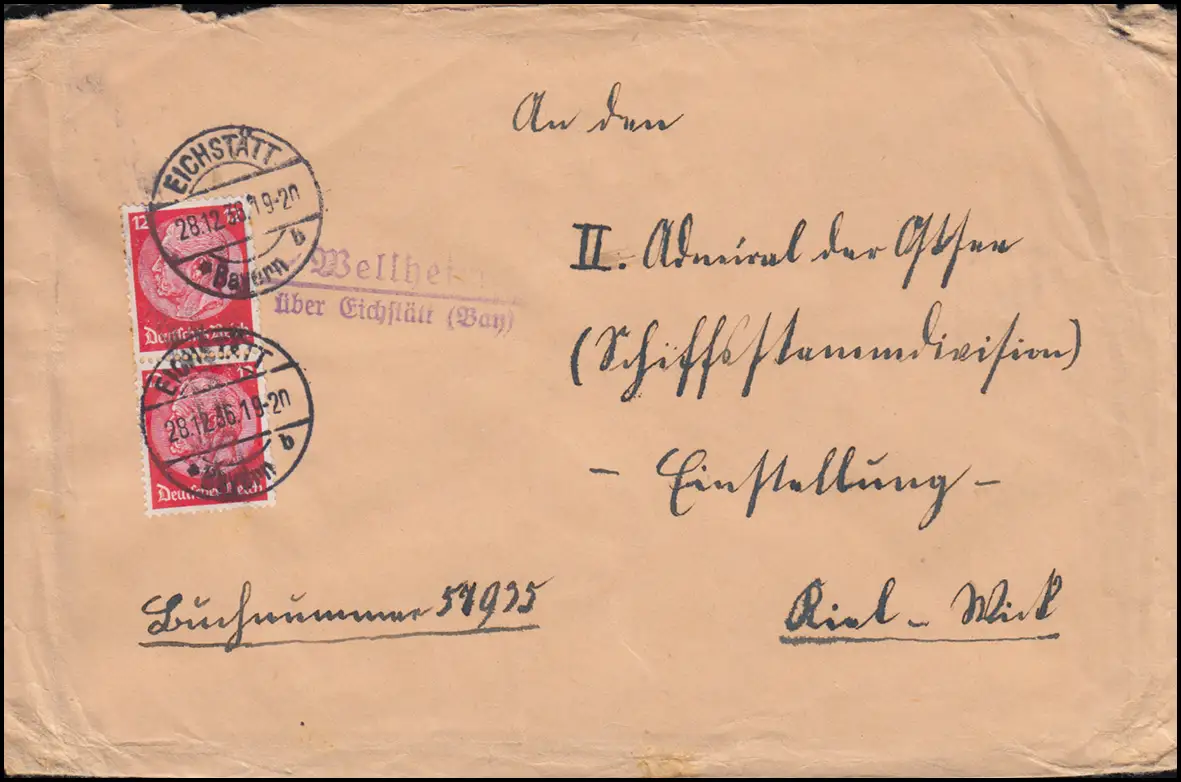 An den
II. Admiral der Ostsee
(Schiffsstammdivision)
- Einstellung -
Kiel - Wick
Buchnummer
EICHSTÄTT
28.12.36.19-20
b
*Bayern
Wellheim
über Eichstätt (Bay)
12
Deutsches Reich
EICHSTÄTT
28.12.36.19-20
b
Deutsches Reich